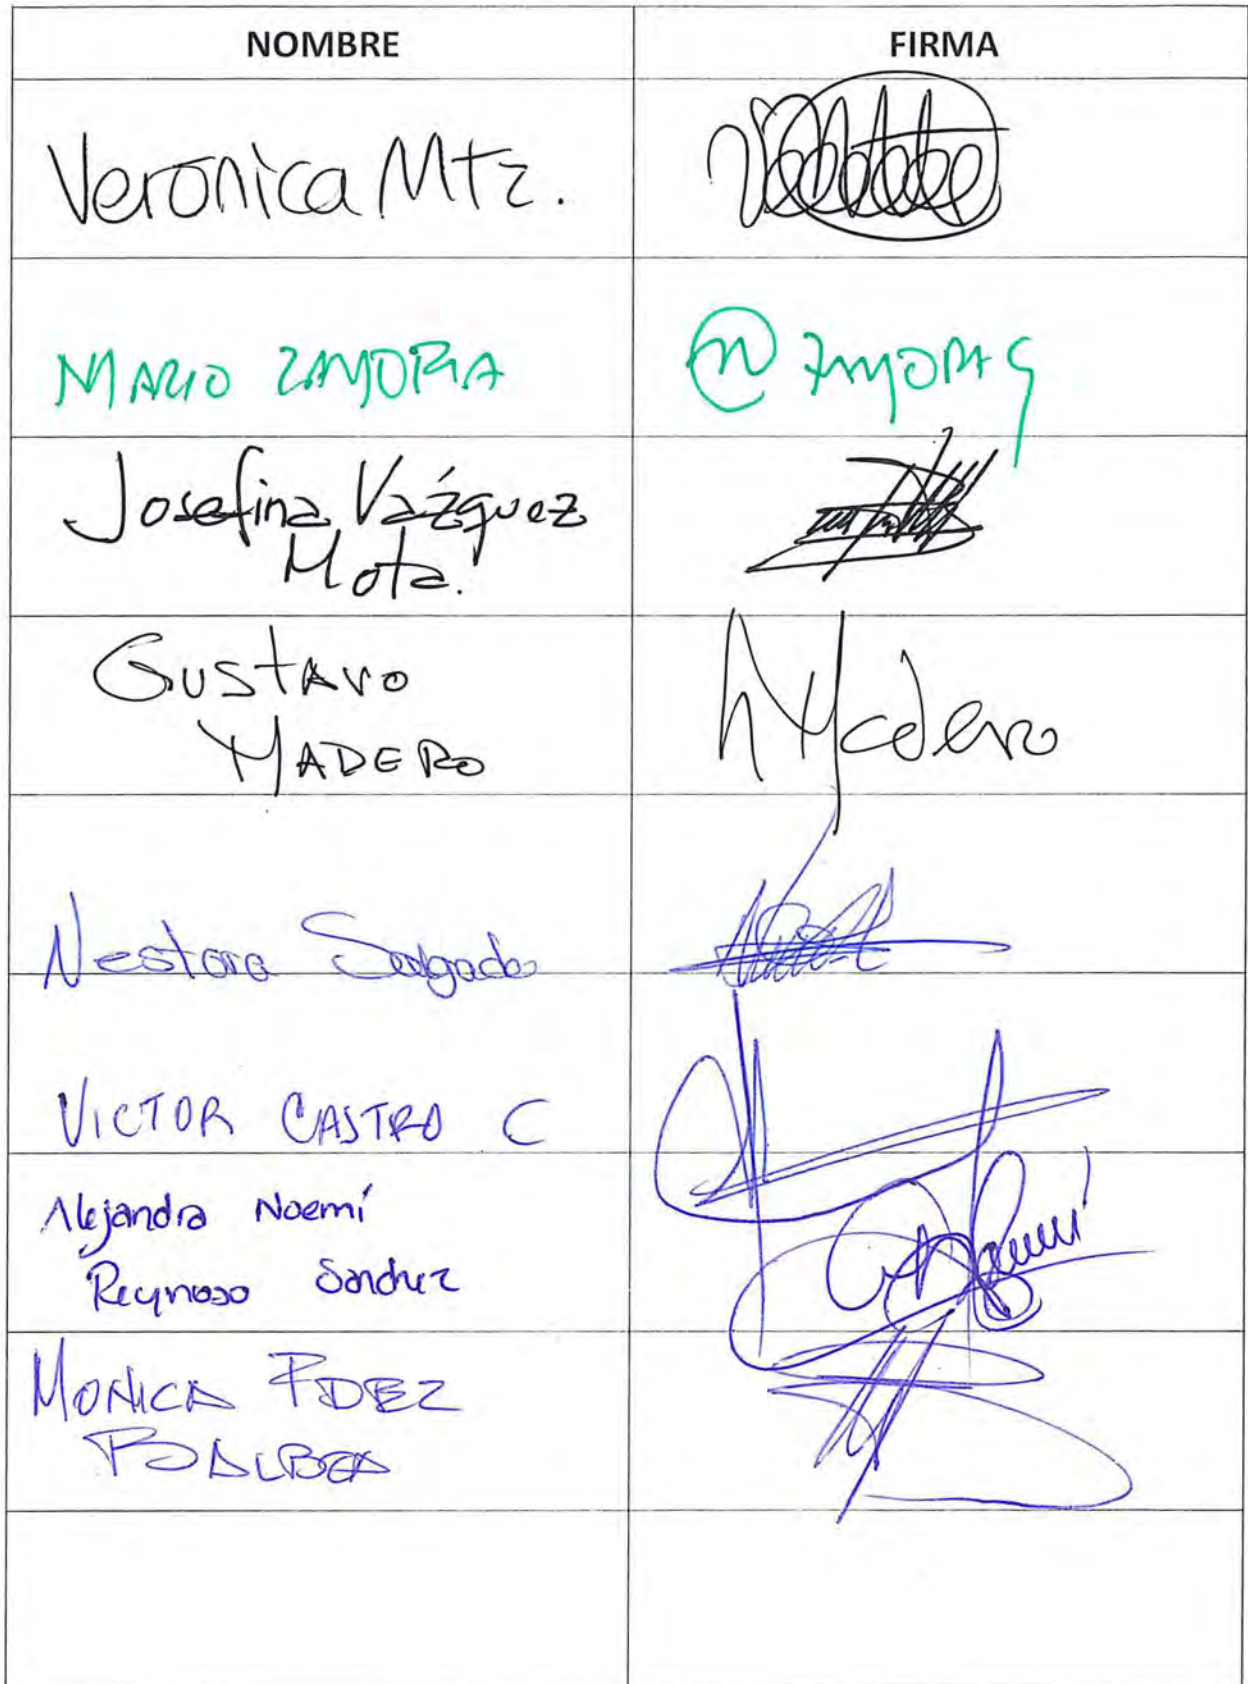 NOMBRE FIRMA
Veronica Mtz.
MARIO ZAMORA
Zamora G
Josefina Vázquez
Mota.
GUSTAVO
MADERO
Madero
Nestora Salgado
VICTOR CASTRO C
Alejandra Noemí
Reynoso Sanchez
MONICA FDEZ
BALBOA